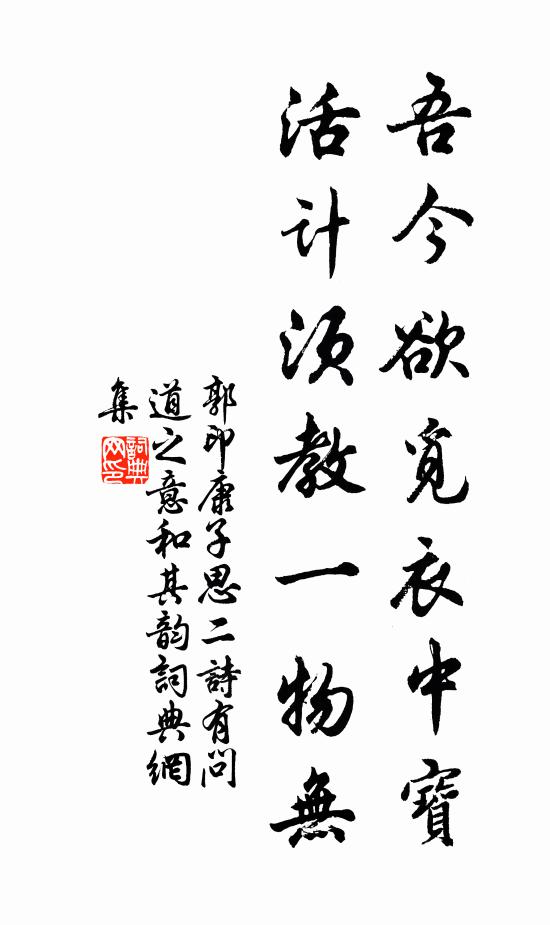 吾今欲覓衣中寶
活計須教一物無
郭印康子思二詩有問
道之意和其韵詞典網
集
詞典
网印